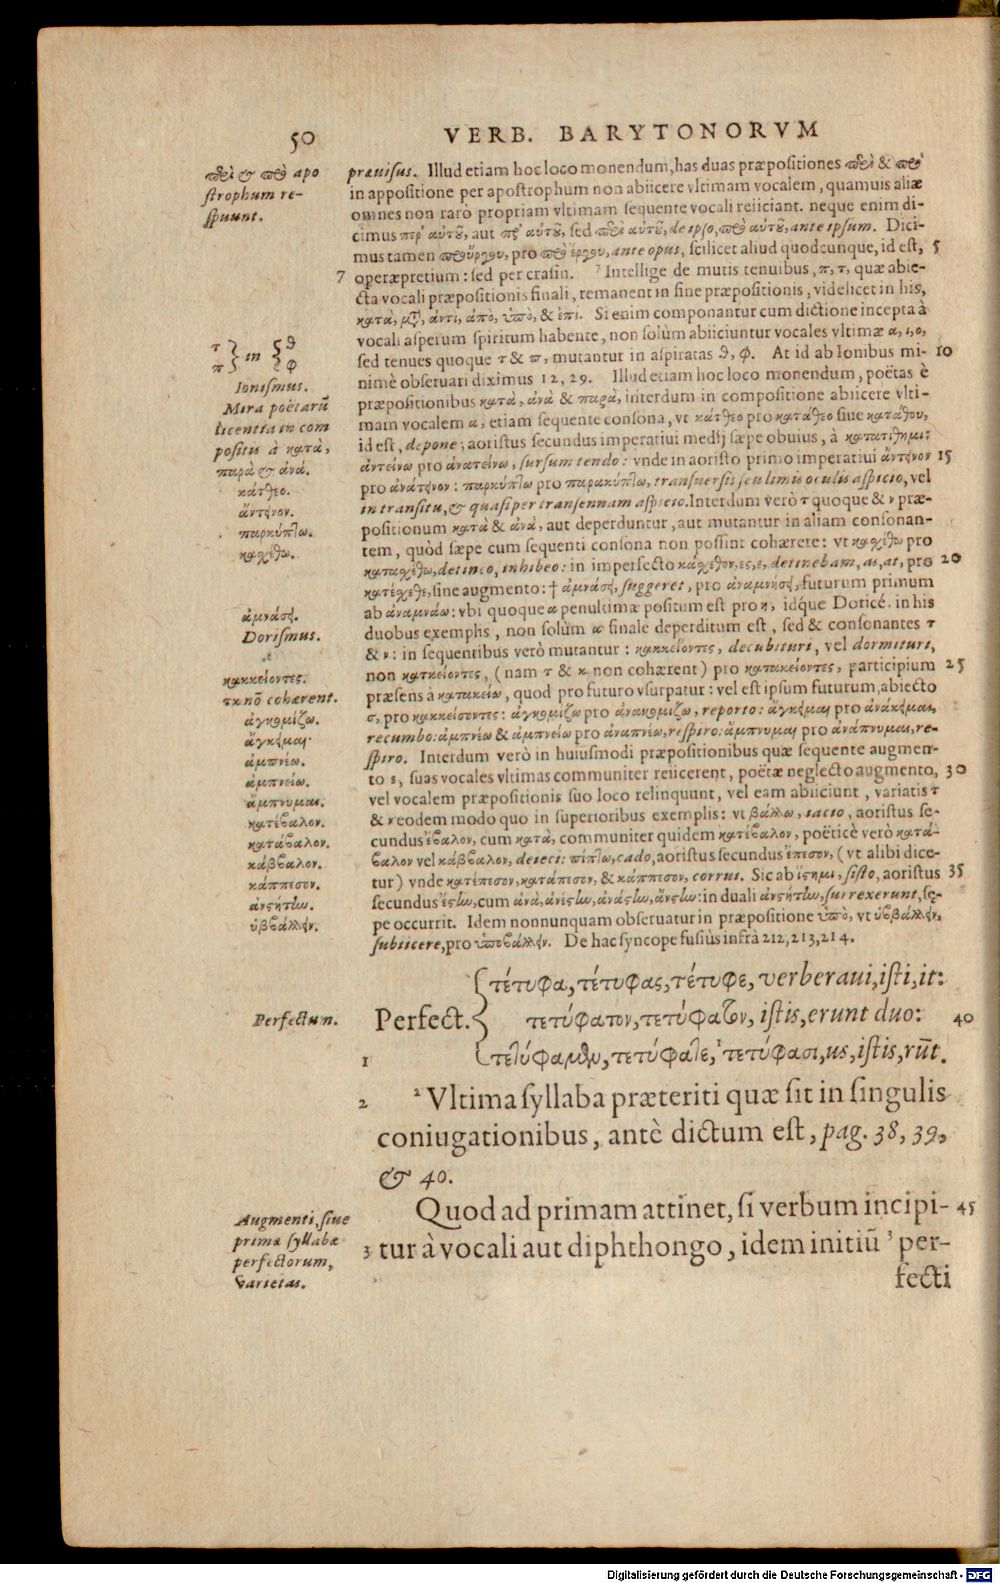 50
VERB. BARYTONORVM
περὶ & πρὸ apo
strophum re-
spuunt.
præuisus. Illud etiam hoc loco monendum, has duas præpositiones περὶ & πρὸ
in appositione per apostrophum non abiicere vltimam vocalem, quamuis aliæ
omnes non rarò propriam vltimam sequente vocali reiiciant. neque enim di-
cimus περ' αὐτοῦ, aut πρ' αὐτοῦ, sed περὶ αὐτοῦ, de ipso, πρὸ αὐτοῦ, ante ipsum. Dici-
mus tamen προὔργου, pro πρὸ ἔργου, ante opus, scilicet aliud quodcunque, id est, 5
7 operæpretium: sed per crasin. ⁷ Intellige de mutis tenuibus, π, τ, quæ abie-
cta vocali præpositionis finali, remanent in fine præpositionis, videlicet in his,
κατὰ, μετὰ, ἀντὶ, ἀπὸ, ὑπὸ, & ἐπὶ. Si enim componantur cum dictione incepta à
vocali asperum spiritum habente, non solùm abiiciuntur vocales vltimæ α, ι, ο,
sed tenues quoque τ & π, mutantur in aspiratas θ, φ. At id ab Ionibus mi- 10
nimè obseruari diximus 12, 29. Illud etiam hoc loco monendum, poëtas è
præpositionibus κατὰ, ἀνὰ & παρὰ, interdum in compositione abiicere vlti-
mam vocalem α, etiam sequente consona, vt κάτθεο pro κατάθεο siue κατάθου,
id est, depone; aoristus secundus imperatiui medij sæpe obuius, à κατατίθημι:
ἀντείνω pro ἀνατείνω, sursum tendo: vnde in aoristo primo imperatiui ἄντηνον 15
pro ἀνάτηνον: παρκύπτω pro παρακύπτω, transuersis seu limis oculis aspicio, vel
in transitu, & quasi per transennam aspicio. Interdum verò τ quoque & ν præ-
positionum κατὰ & ἀνὰ, aut deperduntur, aut mutantur in aliam consonan-
tem, quòd sæpe cum sequenti consona non possint cohærere: vt κασχέθω pro
κατασχέθω, detineo, inhibeo: in imperfecto κάσχεθον, ες, ε, detinebam, as, at, pro 20
κατέσχεθε, sine augmento: † ἀμνάσῃ, suggeret, pro ἀναμνήσῃ, futurum primum
ab ἀναμνάω: vbi quoque α penultimæ positum est pro η, idq́ue Doricè. in his
duobus exemplis, non solùm α finale deperditum est, sed & consonantes τ
& ν: in sequentibus verò mutantur: κακκείοντες, decubituri, vel dormituri,
non κατκείοντες, (nam τ & κ non cohærent) pro κατακείοντες, participium 25
præsens à κατακείω, quod pro futuro vsurpatur: vel est ipsum futurum, abiecto
σ, pro κακκείσοντες: ἀγκομίζω pro ἀνακομίζω, reporto: ἄγκημαι pro ἀνάκημαι,
recumbo: ἀμπνέω & ἀμπνείω pro ἀναπνέω, respiro: ἄμπνυμαι pro ἀνάπνυμαι, re-
spiro. Interdum verò in huiusmodi præpositionibus quæ sequente augmen-
to ε, suas vocales vltimas communiter reiicerent, poëtæ neglecto augmento, 30
vel vocalem præpositionis suo loco relinquunt, vel eam abiiciunt, variatis τ
& ν eodem modo quo in superioribus exemplis: vt βάλλω, iacio, aoristus se-
cundus ἔβαλον, cum κατὰ, communiter quidem κατέβαλον, poëticè verò κατά-
βαλον vel κάββαλον, deieci: πίπτω, cado, aoristus secundus ἔπεσον, (vt alibi dice-
tur) vnde κατέπεσον, κατάπεσον, & κάππεσον, corrui. Sic ab ἵστημι, sisto, aoristus 35
secundus ἔστων, cum ἀνὰ, ἀνέστων, ἀνάστων, ἄνστων: in duali ἀνστήτων, surrexerunt, sę-
pe occurrit. Idem nonnunquam obseruatur in præpositione ὑπὸ, vt ὑββάλλην,
subiicere, pro ὑποβάλλην. De hac syncope fusiùs infrà 212, 213, 214.
τ
π } in { θ
φ
Ionismus.
Mira poëtarũ
licentia in com
positis à κατὰ,
παρὰ & ἀνά.
κάτθεο.
ἄντηνον.
παρκύπτω.
κασχέθω.
ἀμνάσῃ.
Dorismus.
κακκείοντες.
τκ nõ cohærent.
ἀγκομίζω.
ἄγκημαι.
ἀμπνέω.
ἀμπνείω.
ἄμπνυμαι.
κατέβαλον.
κατάβαλον.
κάββαλον.
κάππεσον.
ἀνστήτων.
ὑββάλλην.
τέτυφα, τέτυφας, τέτυφε, verberaui, isti, it:
Perfectum. Perfect. { τετύφατον, τετύφατον, istis, erunt duo: 40
1 τετύφαμεν, τετύφατε, ¹ τετύφασι, us, istis, rũt.
2 ² Vltima syllaba præteriti quæ sit in singulis
coniugationibus, antè dictum est, pag. 38, 39,
& 40.
Quod ad primam attinet, si verbum incipi- 45
3 tur à vocali aut diphthongo, idem initiũ ³ per-
fecti
Augmenti, siue
primæ syllabæ
perfectorum,
varietas.
Digitalisierung gefördert durch die Deutsche Forschungsgemeinschaft - DFG